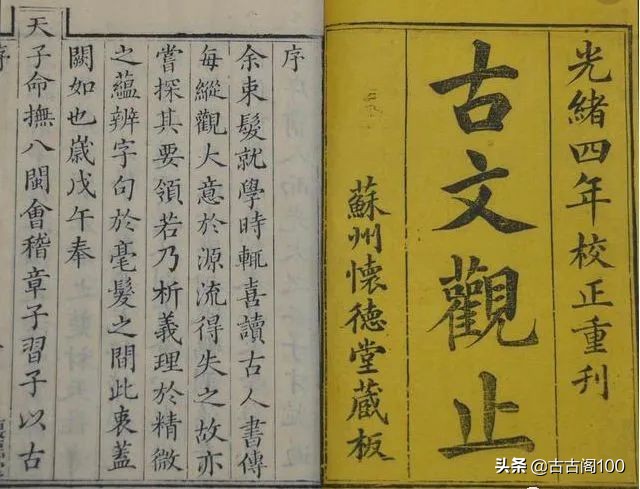 光緒四年校正重刊
古文觀止
蘇州懷德堂藏板
序
余束髮就學時輒喜讀古人書傳
每縱觀大意於源流得失之故亦
嘗探其要領若乃析義理於精微
之蘊辨字句於毫髮之間此衷蓋
闕如也歲戊午奉
天子命撫八閩會稽章子習子以古
序
头条 @古古阁100